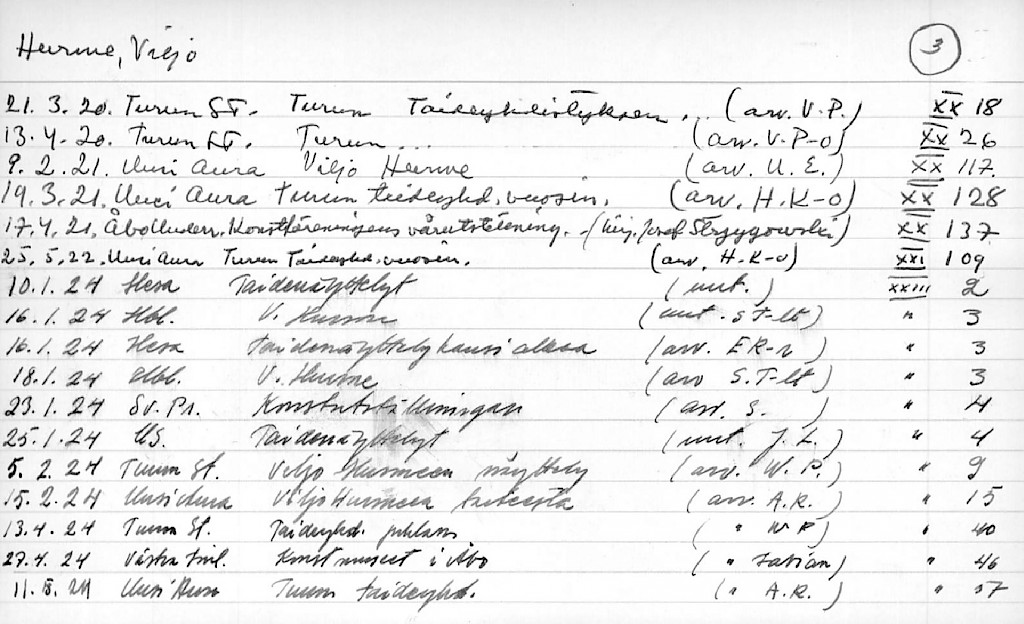 Hurme, Viljo 3
21. 3. 20. Turun ST. Turun Taideyhdistyksen ... (arv. V.P.) XX 18
13. 4. 20. Turun ST. Turun ... (arv. V.P-o) XX 26
9. 2. 21. Uusi Aura Viljo Hurme (arv. U. E.) XX 117.
19. 3. 21. Uusi Aura Turun taideyhd. vuosin. (arv. H.K-o) XX 128
17. 4. 21. Åbo Underr. Konstföreningens vårutställning. (kirj. Josef Strzygowski) XX 137
25. 5. 22. Uusi Aura Turun Taideyhd. vuosin. (arv. H.K-o) XXI 109
10. 1. 24 Hesa Taidenäyttelyt (uut. ) XXIII 2
16. 1. 24 Hbl. V. Hurme (uut. S.T-lt) " 3
16. 1. 24 Hesa Taidenäyttelykausi alkaa (arv. ER-r ) " 3
18. 1. 24 Hbl. V. Hurme (arv S.T-lt) " 3
23. 1. 24 Sv. Pr. Konstutställningar (arv. S. ) " 4
25. 1. 24 US. Taidenäyttelyt (uut. J. L. ) " 4
5. 2. 24 Turun St. Viljo Hurmeen näyttely (arv. W. P.) " 9
15. 2. 24 Uusi Aura Viljo Hurmeen taiteesta (arv. A.R. ) " 15
13. 4. 24 Turun St. Taideyhd. ( " W P ) " 40
27. 4. 24 Västra Finl. Konstmuseet i Åbo ( " Fabian) " 46
11. 24 Uusi Aura Turun taideyhd. ( " A.R. ) "